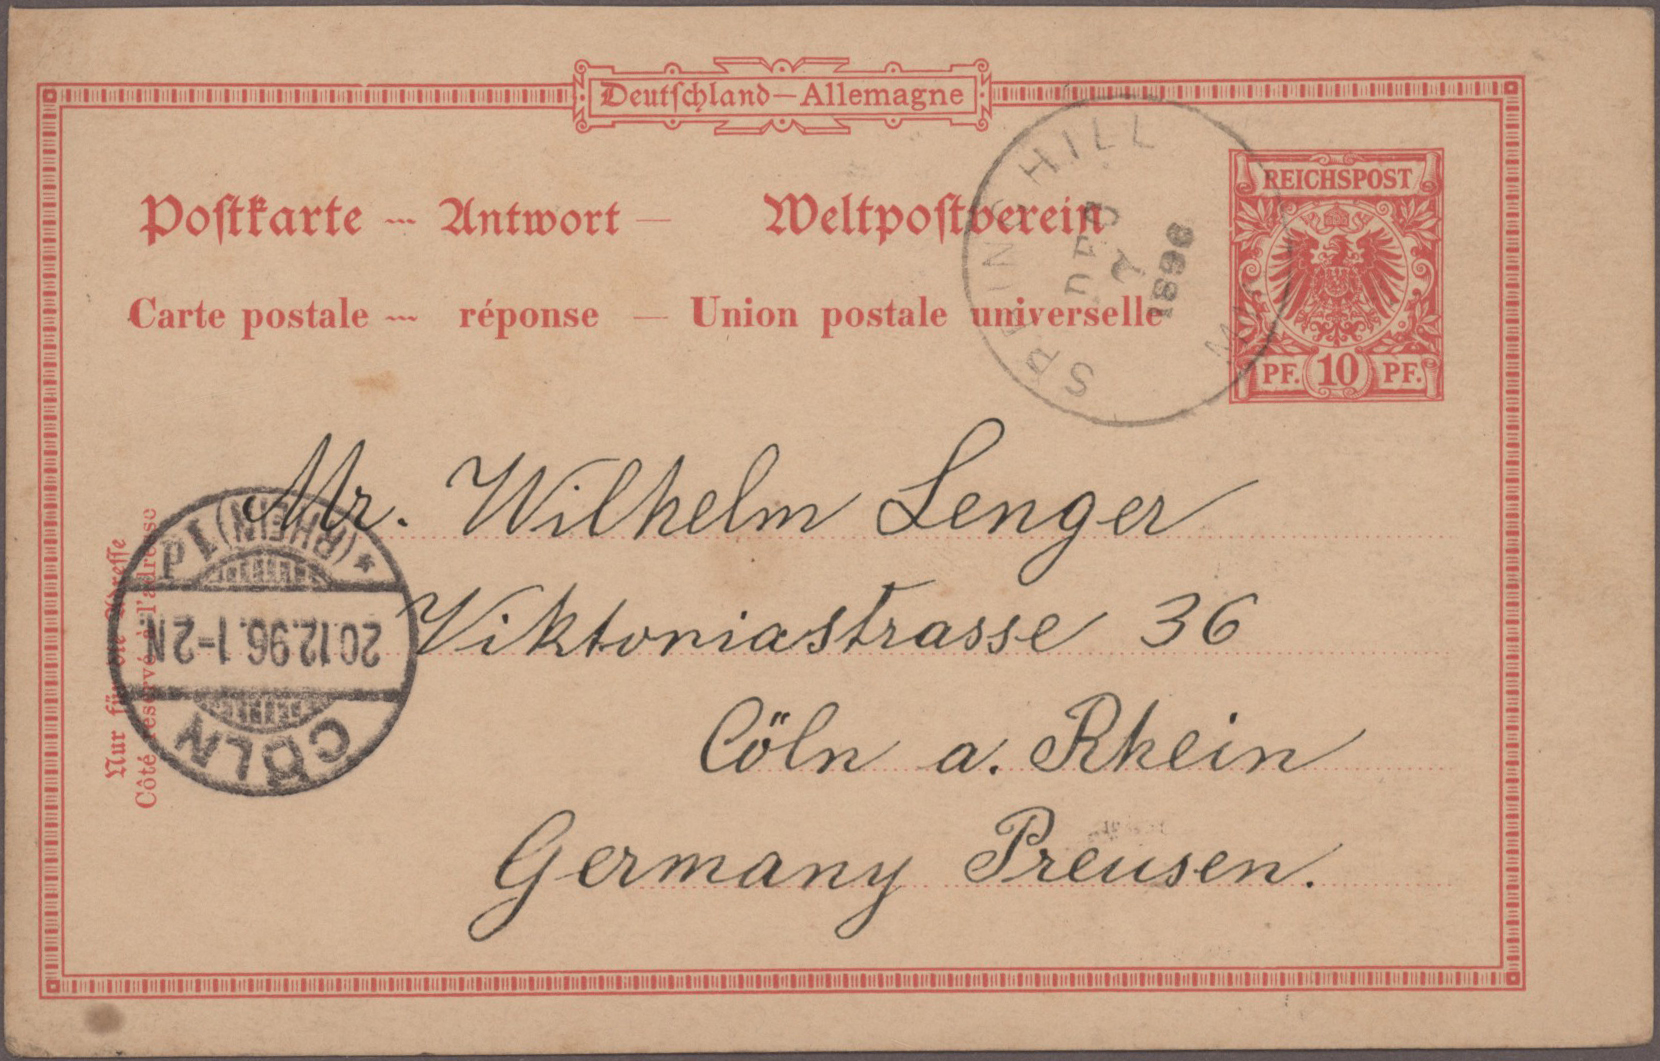 Deutschland—Allemagne
Postkarte ... Antwort — Weltpostverein
Carte postale ... réponse — Union postale universelle
SPRING HILL
DEC
1896
REICHSPOST
PF. 10 PF.
Mr. Wilhelm Lenger
Viktoriastrasse 36
Cöln a. Rhein
Germany Preusen.
Nur für die Adresse
Côté réservé à l'adresse
CÖLN
20.12.96. 1-2N.
* (RHEIN) 1